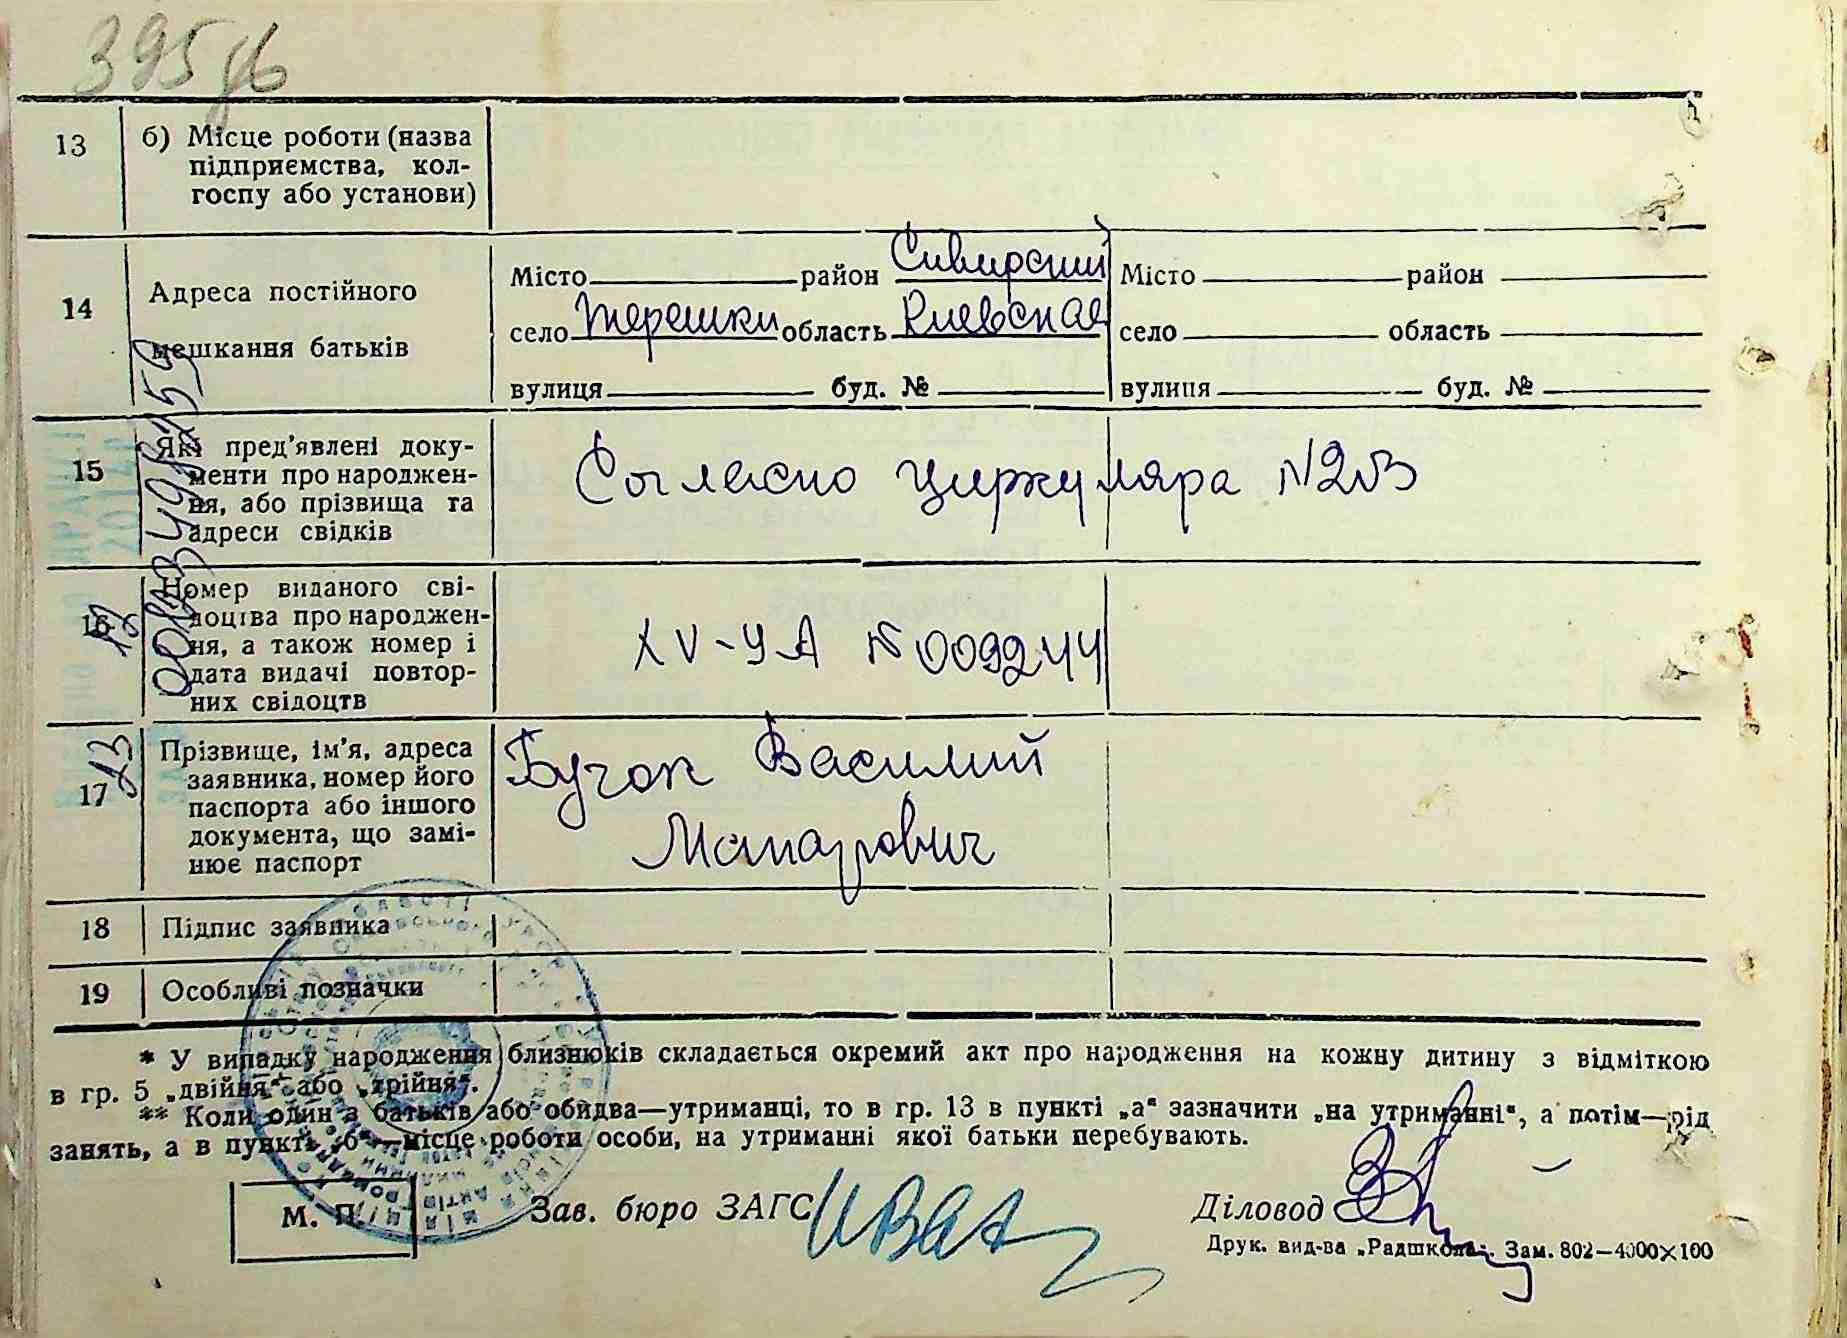 13 б) Місце роботи (назва
підприємства, кол-
госпу або установи)
14 Адреса постійного
мешкання батьків
Місто район Сивирский
село Терешки область Киевская
вулиця буд. №
Місто район
село область
вулиця буд. №
15 Які пред’явлені доку-
менти про народжен-
ня, або прізвища та
адреси свідків
Согласно циркуляра N203
16 Номер виданого сві-
доцтва про народжен-
ня, а також номер і
дата видачі повтор-
них свідоцтв
XV-УА N 009244
17 Прізвище, ім’я, адреса
заявника, номер його
паспорта або іншого
документа, що замі-
нює паспорт
Бучок Василий
Макарович
18 Підпис заявника
19 Особливі позначки
* У випадку народження близнюків складається окремий акт про народження на кожну дитину з відміткою
в гр. 5 „двійня“ або „трійня“.
** Коли один з батьків або обидва—утриманці, то в гр. 13 в пункті „а“ зазначити „на утриманні“, а потім—рід
занять, а в пункті „б“—місце роботи особи, на утриманні якої батьки перебувають.
М. П.
Зав. бюро ЗАГС
Діловод
Друк. вид-ва „Радшкола“. Зам. 802—4000×100